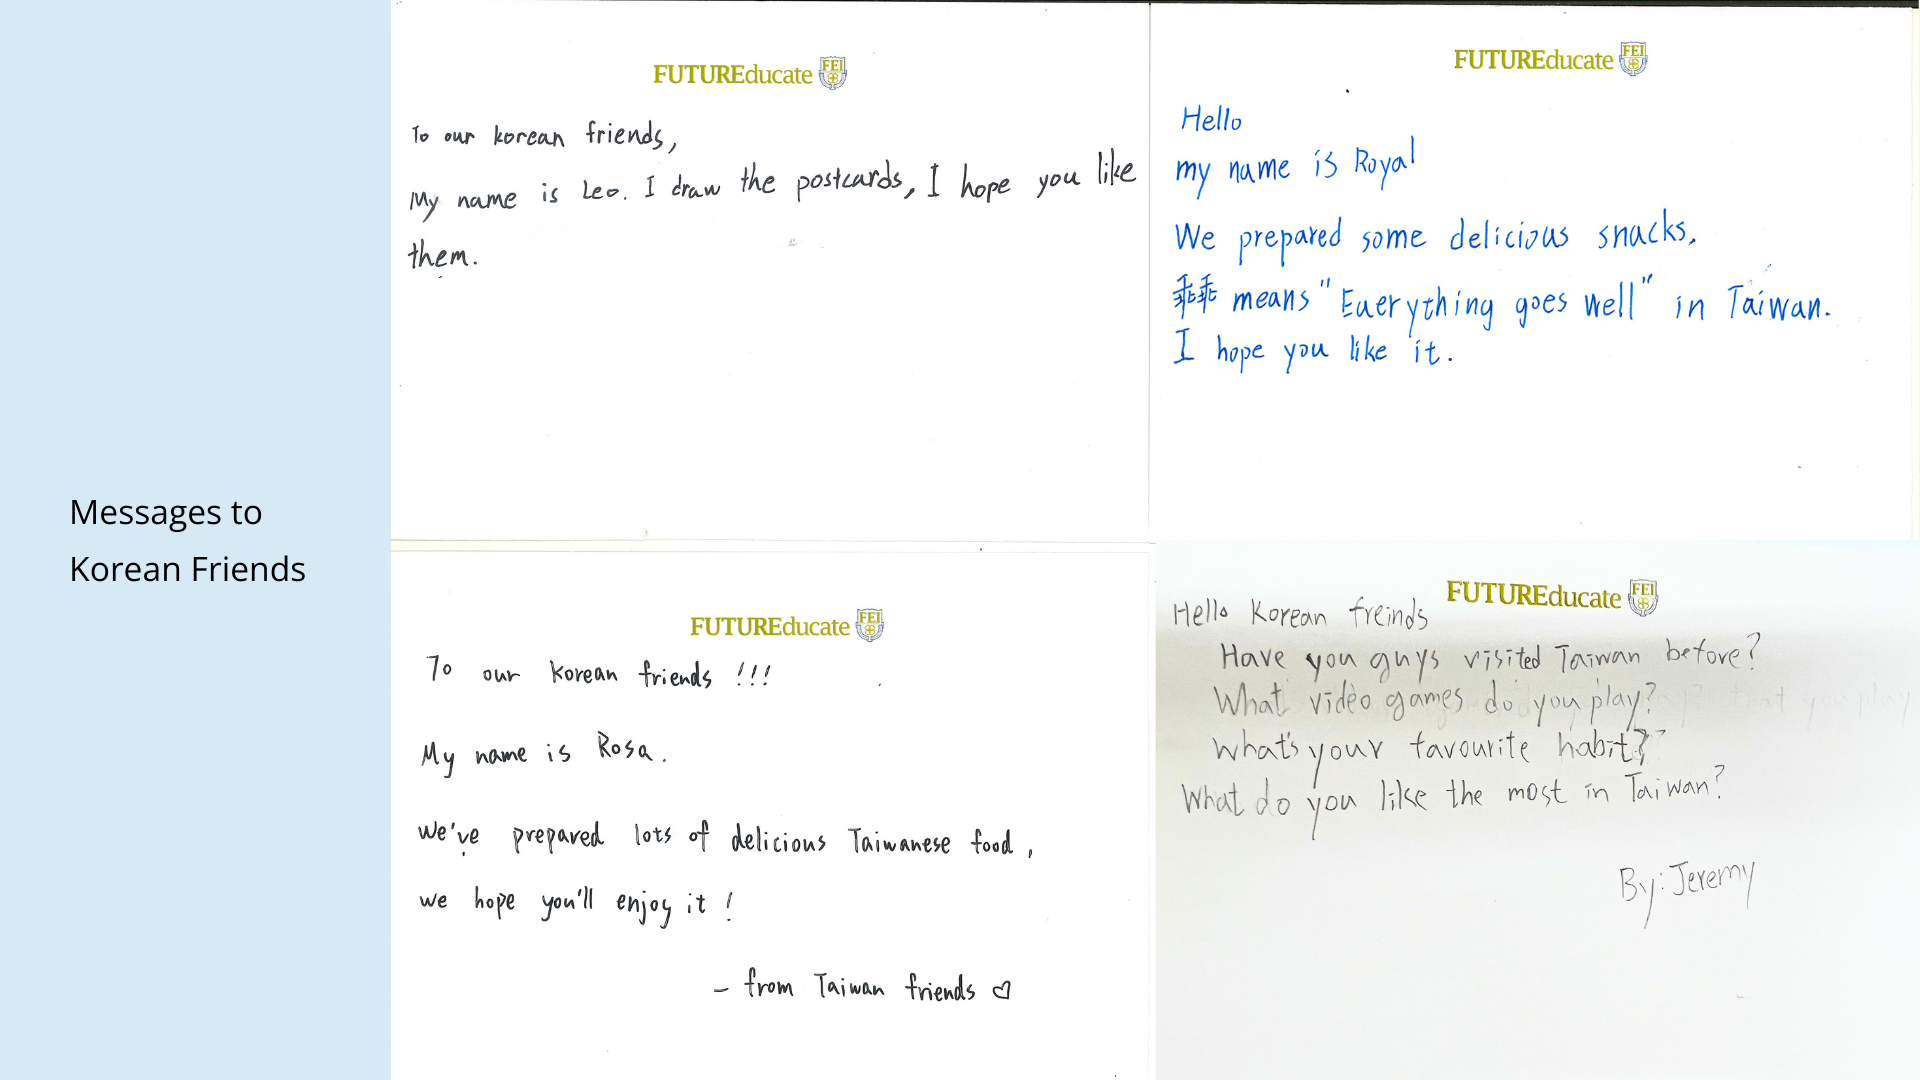 Messages to
Korean Friends
FUTUREducate FEI
To our korean friends,
My name is Leo. I draw the postcards, I hope you like
them.
FUTUREducate FEI
Hello
my name is Royal
We prepared some delicious snacks.
乖乖 means "Everything goes well" in Taiwan.
I hope you like it.
FUTUREducate FEI
To our korean friends !!!
My name is Rosa.
We've prepared lots of delicious Taiwanese food,
we hope you'll enjoy it!
- from Taiwan friends ♡
FUTUREducate FEI
Hello Korean freinds
Have you guys visited Taiwan before?
What video games do you play?
What's your favourite habit?
What do you like the most in Taiwan?
By: Jeremy